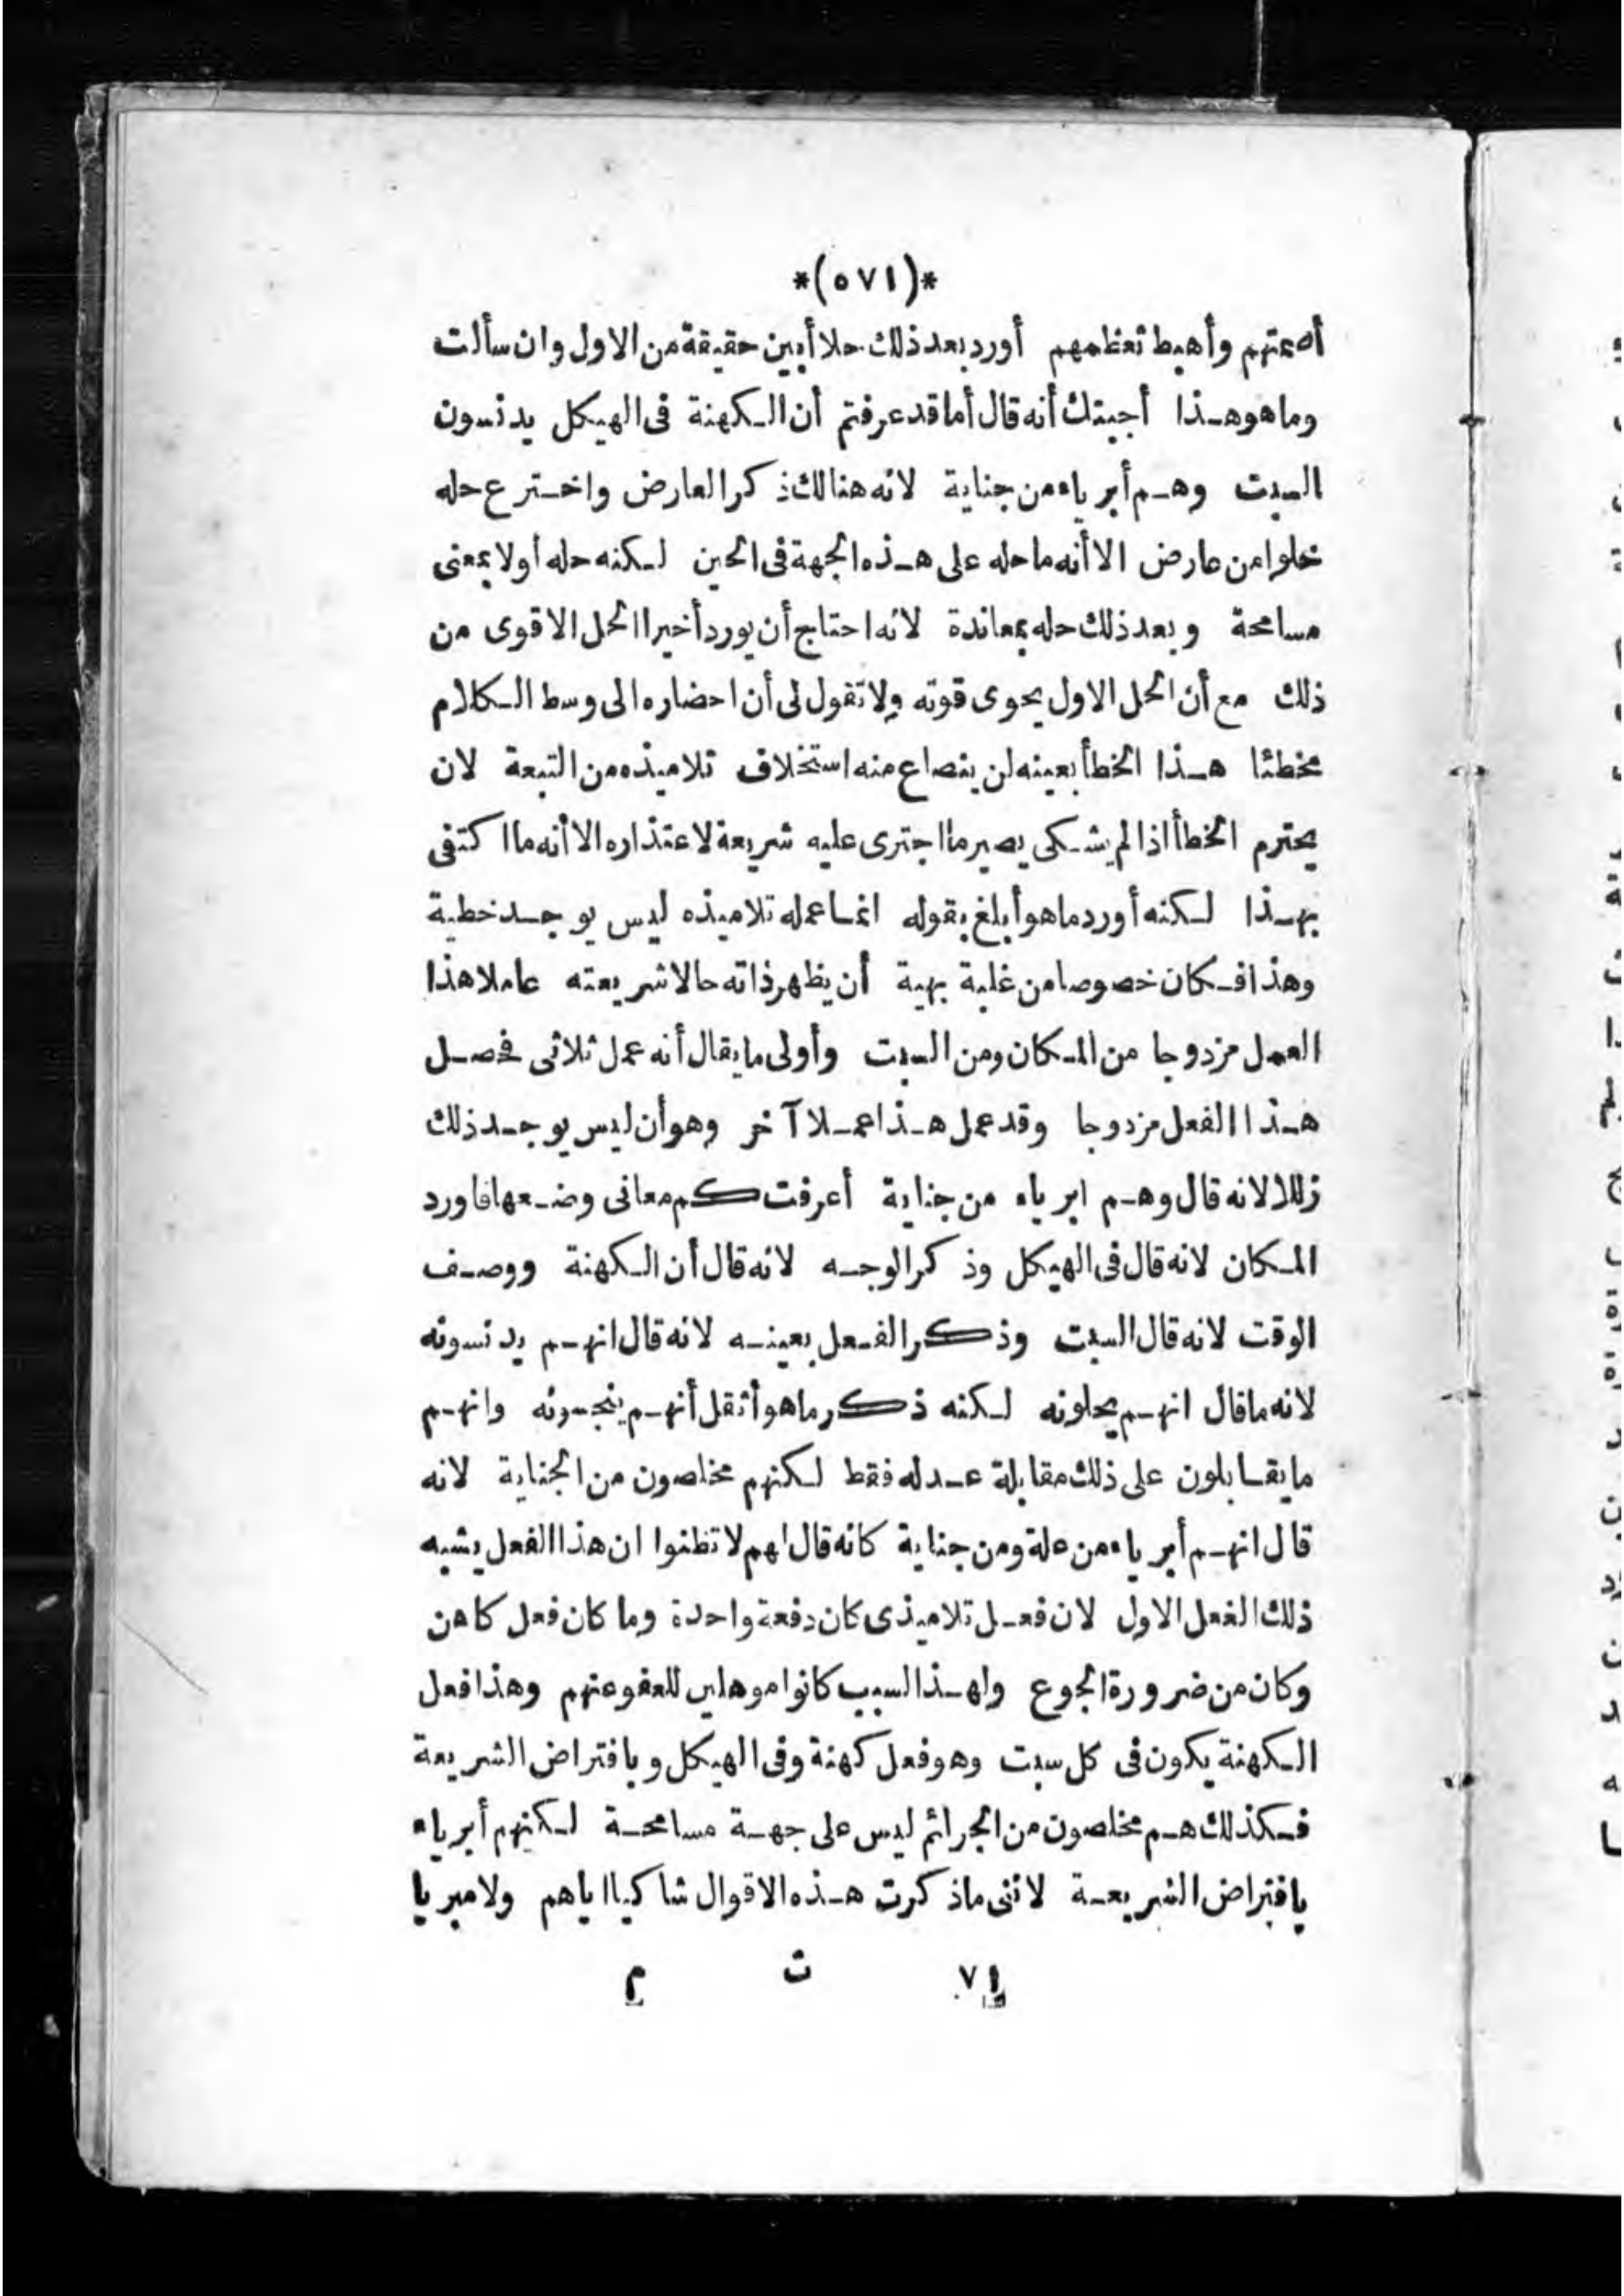 *(٥٧١)*
أهمتهم وأهبط تعظمهم أورد بعد ذلك حلا أبين حقيقة من الاول وان سألت
وما هو هذا أجبتك أنه قال أما قد عرفتم أن الكهنة فى الهيكل يدنسون
السبت وهم أبرياء من جناية لانه هنالك ذكر العارض واخترع حله
خلوا من عارض الا أنه ما حله على هذه الجهة فى الحين لكنه حله أولا بمعنى
مسامحة وبعد ذلك حله بمعاندة لانه احتاج أن يورد أخيرا الحل الاقوى من
ذلك مع أن الحل الاول يحوى قوته ولا تقول لى أن احضاره الى وسط الكلام
مخطئا هذا الخطأ بعينه لن ينصاع منه استخلاف تلاميذه من التبعة لان
يحترم الخطأ اذا لم يشكى يصير ما اجترى عليه شريعة لاعتذاره الا أنه ما اكتفى
بهذا لكنه أورد ما هو أبلغ بقوله انما عمله تلاميذه ليس يوجد خطية
وهذا فكان خصوصا من غلبة بهية أن يظهر ذاته حالا شريعته عاملا هذا
العمل مزدوجا من المكان ومن السبت وأولى ما يقال أنه عمل ثلاثى فحصل
هذا الفعل مزدوجا وقد عمل هذا عملا آخر وهو أن ليس يوجد ذلك
زللا لانه قال وهم ابرياء من جناية أعرفت كم معانى وضعها فاورد
المكان لانه قال فى الهيكل وذكر الوجه لانه قال أن الكهنة ووصف
الوقت لانه قال السبت وذكر الفعل بعينه لانه قال انهم يدنسونه
لانه ما قال انهم يحلونه لكنه ذكر ما هو أثقل أنهم ينجسونه وانهم
ما يقابلون على ذلك مقابلة عدله فقط لكنهم مخلصون من الجناية لانه
قال انهم أبرياء من علة ومن جناية كانه قال لهم لا تظنوا ان هذا الفعل يشبه
ذلك الفعل الاول لان فعل تلاميذى كان دفعة واحدة وما كان فعل كاهن
وكان من ضرورة الجوع ولهذا السبب كانوا موهلين للعفو عنهم وهذا فعل
الكهنة يكون فى كل سبت وهو فعل كهنة وفى الهيكل وبافتراض الشريعة
فكذلك هم مخلصون من الجرائم ليس على جهة مسامحة لكنهم أبرياء
بافتراض الشريعة لاننى ما ذكرت هذه الاقوال شاكيا اياهم ولا مبريا
٧١ ت م